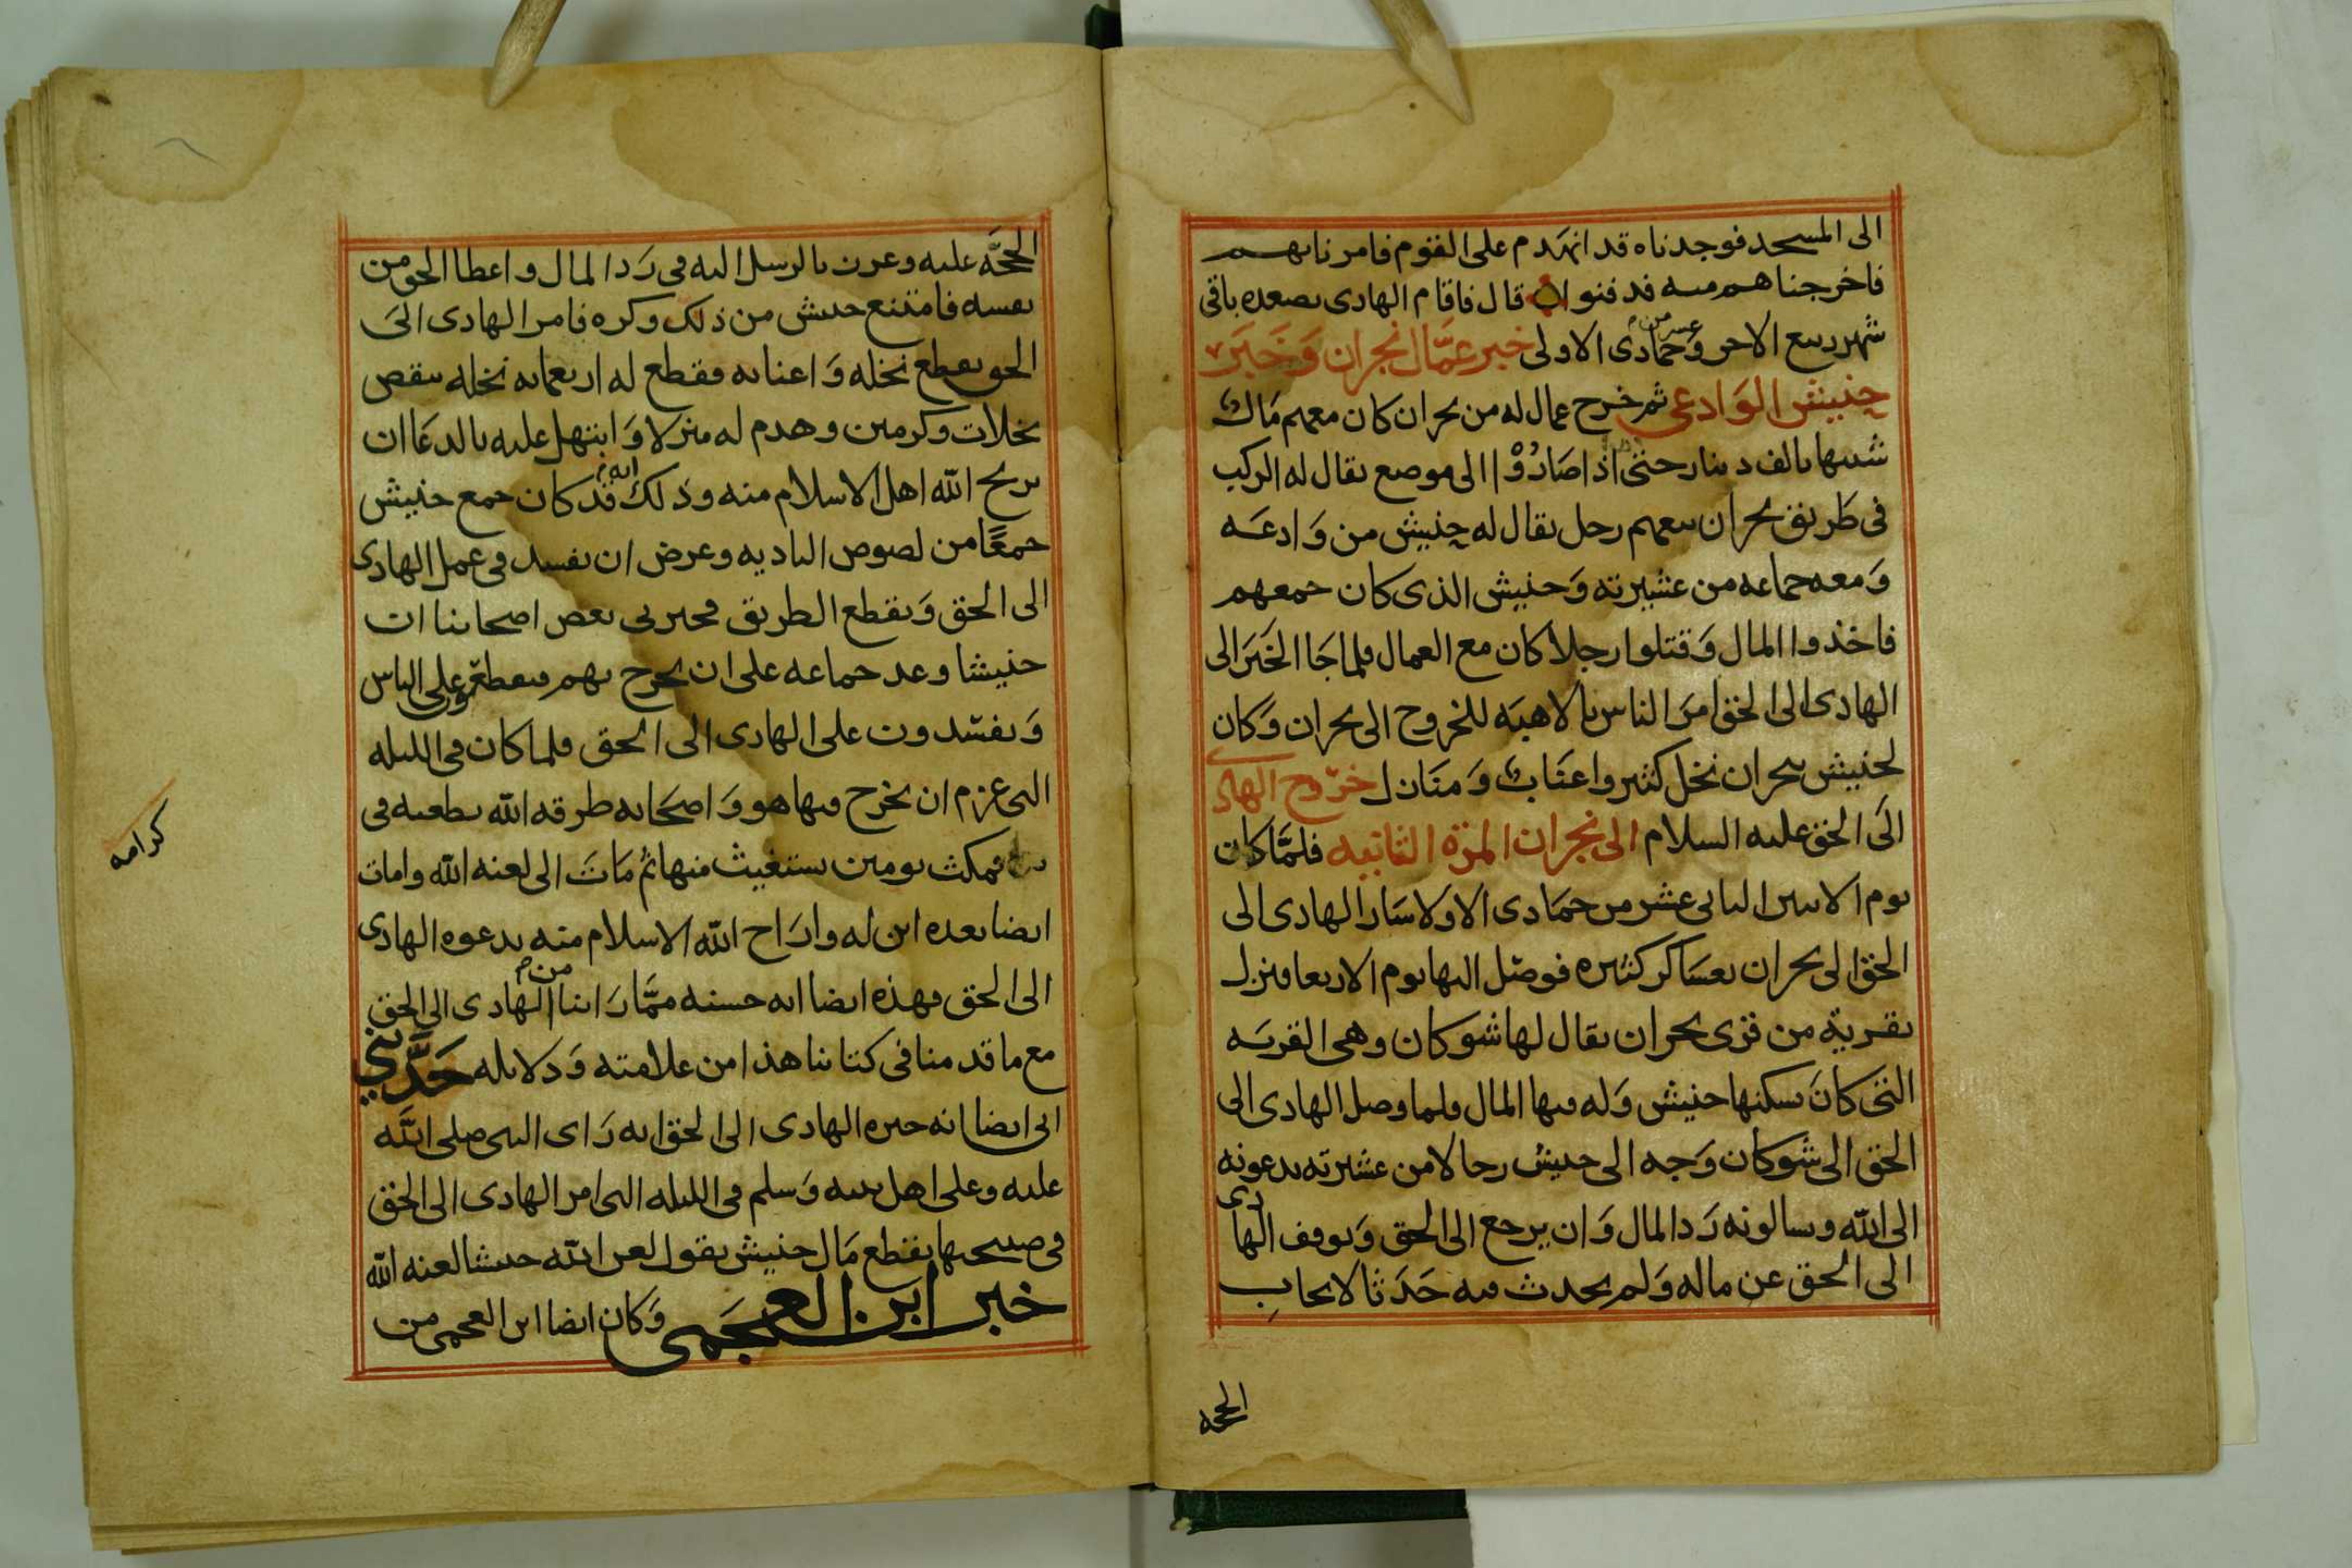 الى المسجد فوجدناه قد انهدم على القوم فامرنا بهم
فاخرجناهم منه فدفنوا قال فاقام الهادى بصعده باقى
شهر ربيع الاخر وعشر من جمادى الاولى خبر عمال نجران وخبر
حنيش الوادعى ثم خرج عمال له من نجران كان معهم مال
شبيها بالف دينار حتى اذا صاروا الى موضع يقال له الركب
فى طريق نجران تبعهم رجل يقال له حنيش من وادعه
ومعه جماعه من عشيرته وحنيش الذى كان جمعهم
فاخذوا المال وقتلوا رجلا كان مع العمال فلما جا الخبر الى
الهادى الى الحق امر الناس بالاهبه للخروج الى نجران وكان
لحنيش بنجران نخل كثير واعناب ومنازل خروج الهادى
الى الحق عليه السلام الى نجران المرة الثانيه فلما كان
يوم الاثنين الثانى عشر من جمادى الاولا سار الهادى الى
الحق الى نجران بعساكر كثيره فوصل اليها يوم الاربعا فنزل
بقرية من قرى نجران يقال لها شوكان وهى القريه
التى كان يسكنها حنيش وله فيها المال فلما وصل الهادى الى
الحق الى شوكان وجه الى حنيش رجالا من عشيرته يدعونه
الى الله ويسالونه رد المال وان يرجع الى الحق وتوقف الهادى
الى الحق عن ماله ولم يحدث فيه حدثا لايجاب
الحجه
الحجة عليه وعرن بالرسل اليه فى رد المال واعطا الحق من
نفسه فامتنع حنيش من ذلك وكره فامر الهادى الى
الحق بقطع نخله واعنابه فقطع له اربعمايه نخله تنقص
نخلات وكرمين وهدم له منزلا وابتهل عليه بالدعا ان
يريح الله اهل الاسلام منه وذلك انه قد كان جمع حنيش
جمعا من لصوص الباديه وعرض ان يفسد فى عمل الهادى
الى الحق ويقطع الطريق فخبرنى بعض اصحابنا ان
حنيشا وعد جماعه على ان يخرج بهم فيقطعو على الناس
ويفسدون على الهادى الى الحق فلما كان فى الليله
التى عزم ان يخرج فيها هو واصحابه طرقه الله بطعنه فى
فمكث يومين يستغيث منها ثم مات الى لعنه الله وامات
ايضا بعده ابن له واراح الله الاسلام منه بدعوه الهادى
الى الحق فهذه ايضا ايه حسنه مما راينا من الهادى الى الحق
مع ما قدمنا فى كتابنا هذا من علامته ودلايله حدثنى
ابى ايضا انه خبره الهادى الى الحق انه راى النبى صلى الله
عليه وعلى اهل بيته وسلم فى الليله التى امر الهادى الى الحق
فى صبيحتها بقطع مال حنيش يقول لعن الله حنيشا لعنه الله
خبر ابن العجمى وكان ايضا ابن العجمى من
كرامه